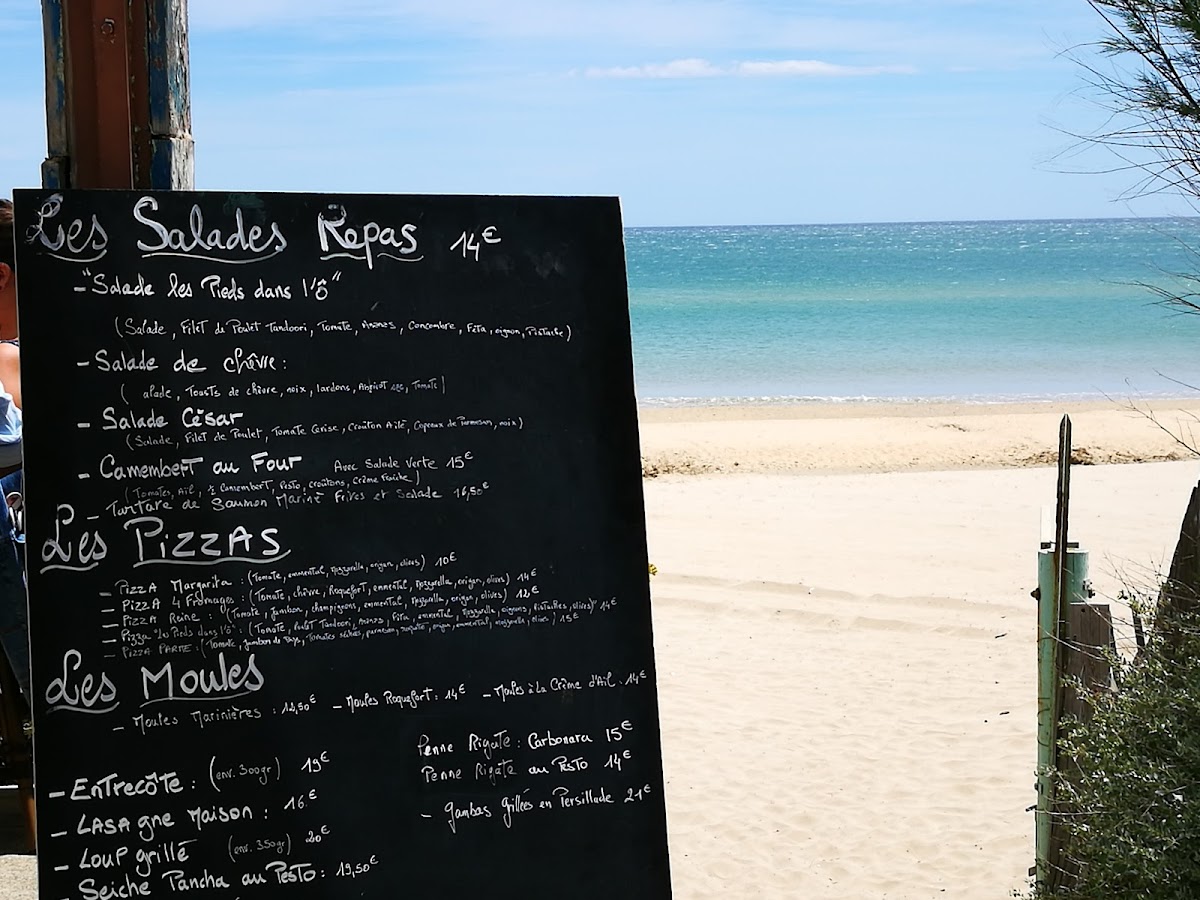 Les Salades Repas 14€
- "Salade les Pieds dans l'ô"
(Salade, Filet de Poulet Tandoori, Tomate, Ananas, Concombre, Fêta, oignon, Pistache)
- Salade de chèvre:
( alade, Toasts de chèvre, noix, lardons, Abricot sec, Tomate)
- Salade César
(Salade, Filet de Poulet, Tomate Cerise, Croûton Ailé, Copeaux de Parmesan, noix)
- Camembert au Four Avec Salade Verte 15€
(Tomates, Ail, ½ Camembert, Pesto, croûtons, Crème fraîche)
- Tartare de Saumon Mariné Frites et Salade 16,50€
Les Pizzas
- Pizza Margarita : (Tomate, emmental, Mozzarella, origan, olives) 10€
- Pizza 4 Fromages : (Tomate, chèvre, Roquefort, emmental, Mozzarella, origan, olives) 14€
- Pizza Reine : (Tomate, Jambon, champignons, emmental, Mozzarella, origan, olives) 12€
- Pizza "Les Pieds dans l'ô" : (Tomate, Poulet Tandoori, Ananas, Fêta, emmental, Mozzarella, oignons, Pistaches, olives) 14€
- Pizza Parme : (Tomate, Jambon de Pays, Tomates séchées, parmesan, roquette, origan, emmental, mozzarella, olives) 15€
Les Moules
- Moules Marinières : 12,50€ - Moules Roquefort : 14€ - Moules à la Crème d'Ail . 14€
Penne Rigate : Carbonara 15€
Penne Rigate au Pesto 14€
- Gambas grillées en Persillade 21€
- Entrecôte : (env. 300gr) 19€
- Lasagne Maison : 16.€
- Loup grillé (env. 350gr) 20€
- Seiche Pancha au Pesto : 19,50€